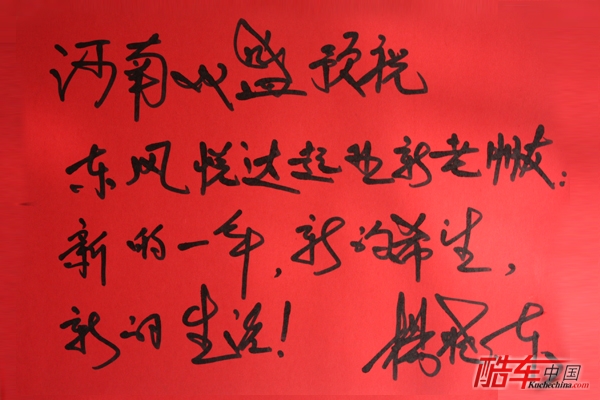 河南威盛预祝
东风悦达起亚新老朋友：
新的一年，新的希望，
新的生活！
东
酷车中国
Kuchechina.com